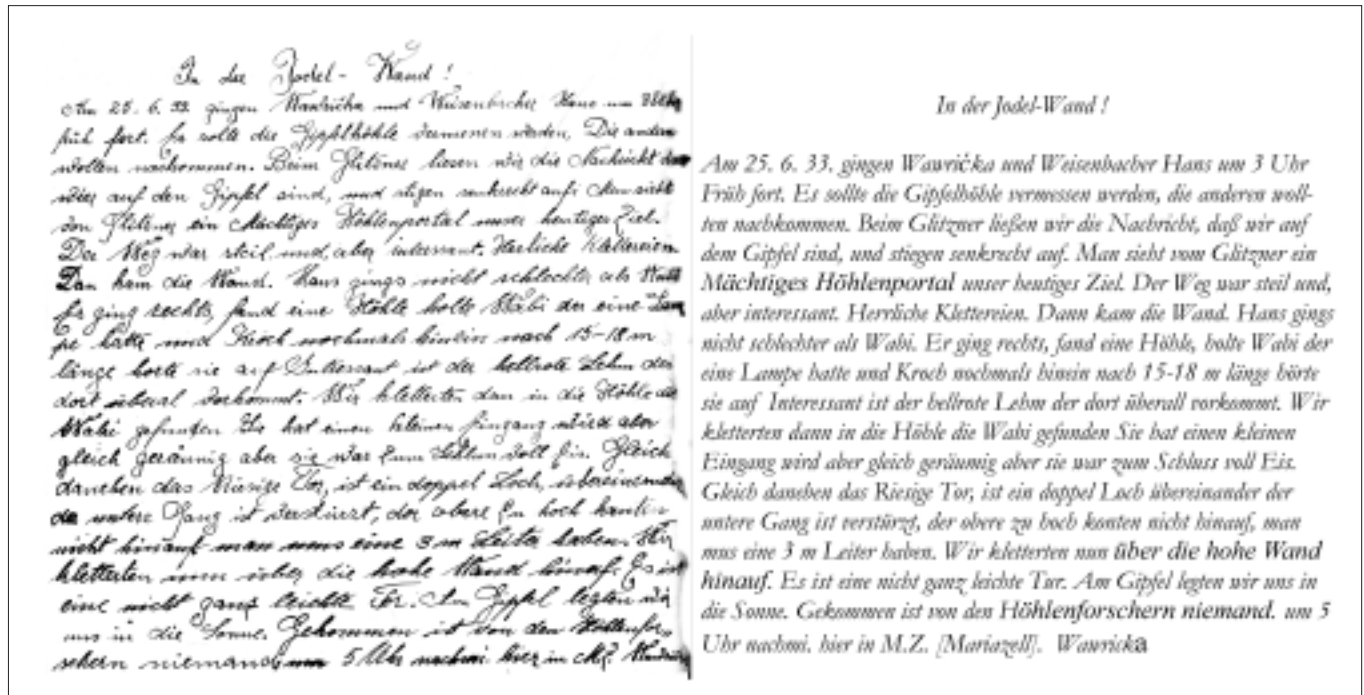 In der Jodel- Wand !
Am 25. 6. 33. gingen Wawrička und Weisenbacher Hans um 3 Uhr
früh fort. Es solte die Gipfelhöhle vermesen werden, Die andern
wollten nachkommen. Beim Glitzner liesen wir die Nachricht das
wier auf den Gipfel sind, und stigen senkrecht auf. Man sieht
von Glitzner ein Mächtiges Höhlenportal unser heutiges Ziel.
Der Weg war steil und, aber interrsant. Herliche Klettereien
Dan kam die Wand. Hans gings nicht schlechter als Wabi
Er ging rechts, fand eine Höhle holte Wabi der eine Lam
pe hatte und Kroch nochmals hinein nach 15-18 m
länge horte sie auf Intressant ist der hellrote Lehm der
dort überal vorkommt. Wir kletterten dan in die Höhle die
Wabi gefunden Sie hat einen kleinen Eingang wird aber
gleich geräumig aber sie war zum Schluss voll Eis. Gleich
daneben das Riesige Tor, ist ein doppel Loch, übereinander
der untere Gang ist verstürzt, der obere zu hoch konten
nicht hinauf man mus eine 3 m Leiter haben. Wir
kletterten nun über die hohe Wand hinauf. Es ist
eine nicht ganz leichte Tur. Am Gipfel legten wir
uns in die Sonne. Gekommen ist von den Höllenfor-
schern niemand um 5 Uhr nachmi hier in M.Z. Wawricka
In der Jodel-Wand !
Am 25. 6. 33. gingen Wawrička und Weisenbacher Hans um 3 Uhr
Früh fort. Es sollte die Gipfelhöhle vermessen werden, die anderen woll-
ten nachkommen. Beim Glitzner ließen wir die Nachricht, daß wir auf
dem Gipfel sind, und stiegen senkrecht auf. Man sieht vom Glitzner ein
Mächtiges Höhlenportal unser heutiges Ziel. Der Weg war steil und,
aber interessant. Herrliche Klettereien. Dann kam die Wand. Hans gings
nicht schlechter als Wabi. Er ging rechts, fand eine Höhle, holte Wabi der
eine Lampe hatte und Kroch nochmals hinein nach 15-18 m länge hörte
sie auf Interessant ist der hellrote Lehm der dort überall vorkommt. Wir
kletterten dann in die Höhle die Wabi gefunden Sie hat einen kleinen
Eingang wird aber gleich geräumig aber sie war zum Schluss voll Eis.
Gleich daneben das Riesige Tor, ist ein doppel Loch übereinander der
untere Gang ist verstürzt, der obere zu hoch konten nicht hinauf, man
mus eine 3 m Leiter haben. Wir kletterten nun über die hohe Wand
hinauf. Es ist eine nicht ganz leichte Tur. Am Gipfel legten wir uns in
die Sonne. Gekommen ist von den Höhlenforschern niemand. um 5
Uhr nachmi. hier in M.Z. [Mariazell]. Wawricka